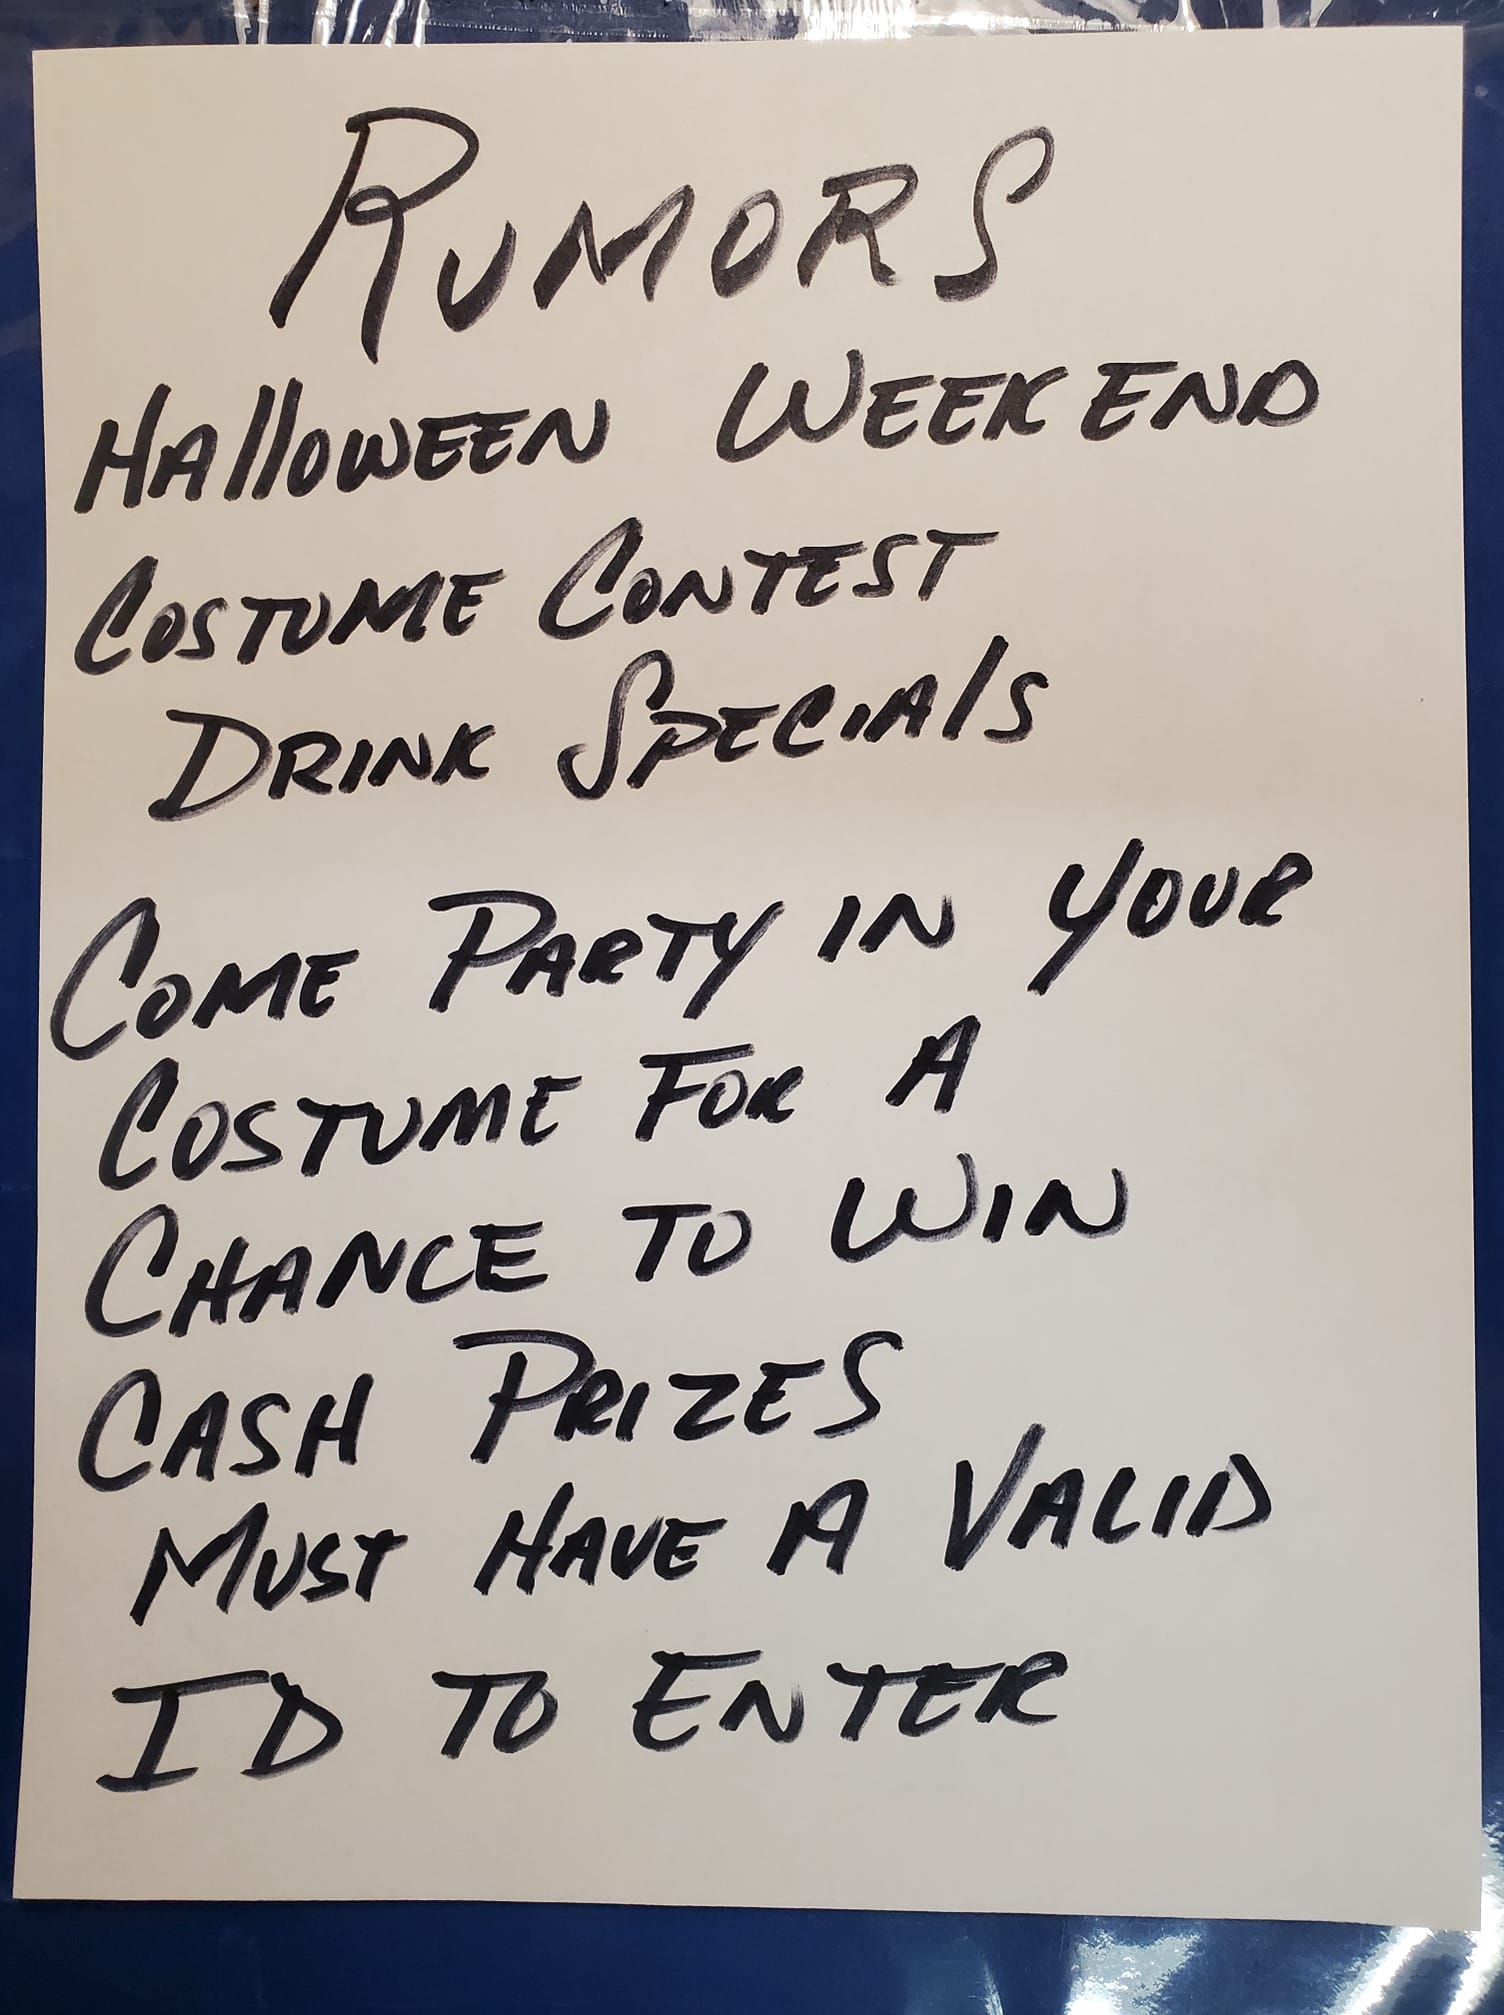 RUMORS
HAllOWEEN WEEKEND
COSTUME CONTEST
DRINK SPECIAlS
COME PARTY IN YOUR
COSTUME FOR A
CHANCE TO WIN
CASH PRIZES
MUST HAVE A VALID
ID TO ENTER